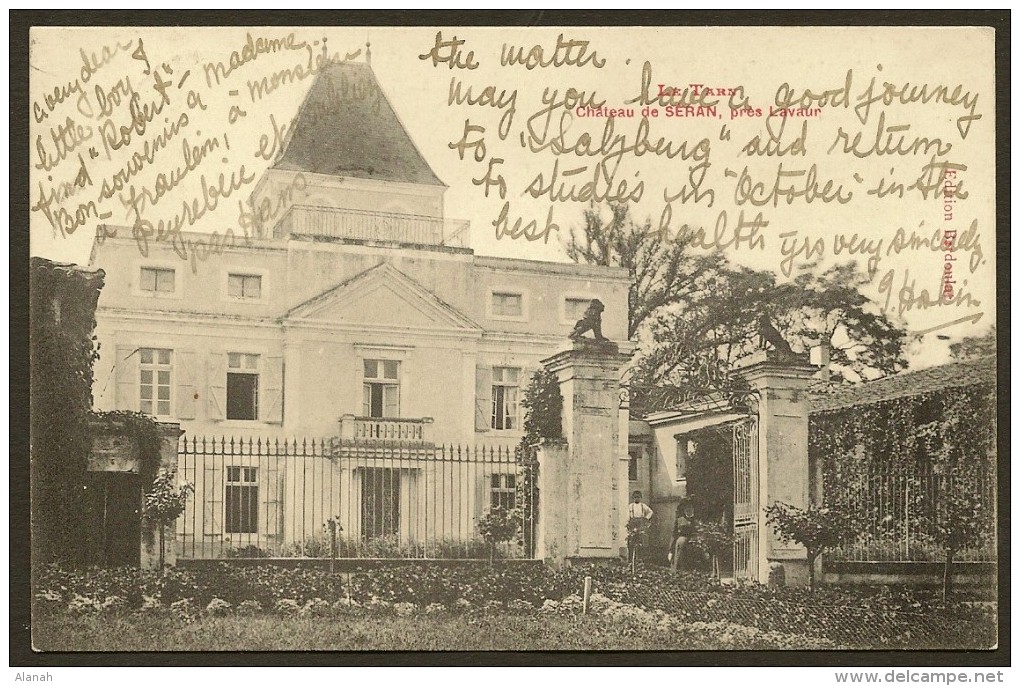 a very dear
little boy &
find "Robert" -
Bon souvenirs a madame
a fraulein, à monsieur
Peyrebrie et
pas
the matter.
may you have a good journey
to "Salzburg" and return
to studies in "October" in the
best health yrs very sincerely,
LE TARN
Château de SÉRAN, près Lavaur
Edition
Alanah
www.delcampe.net